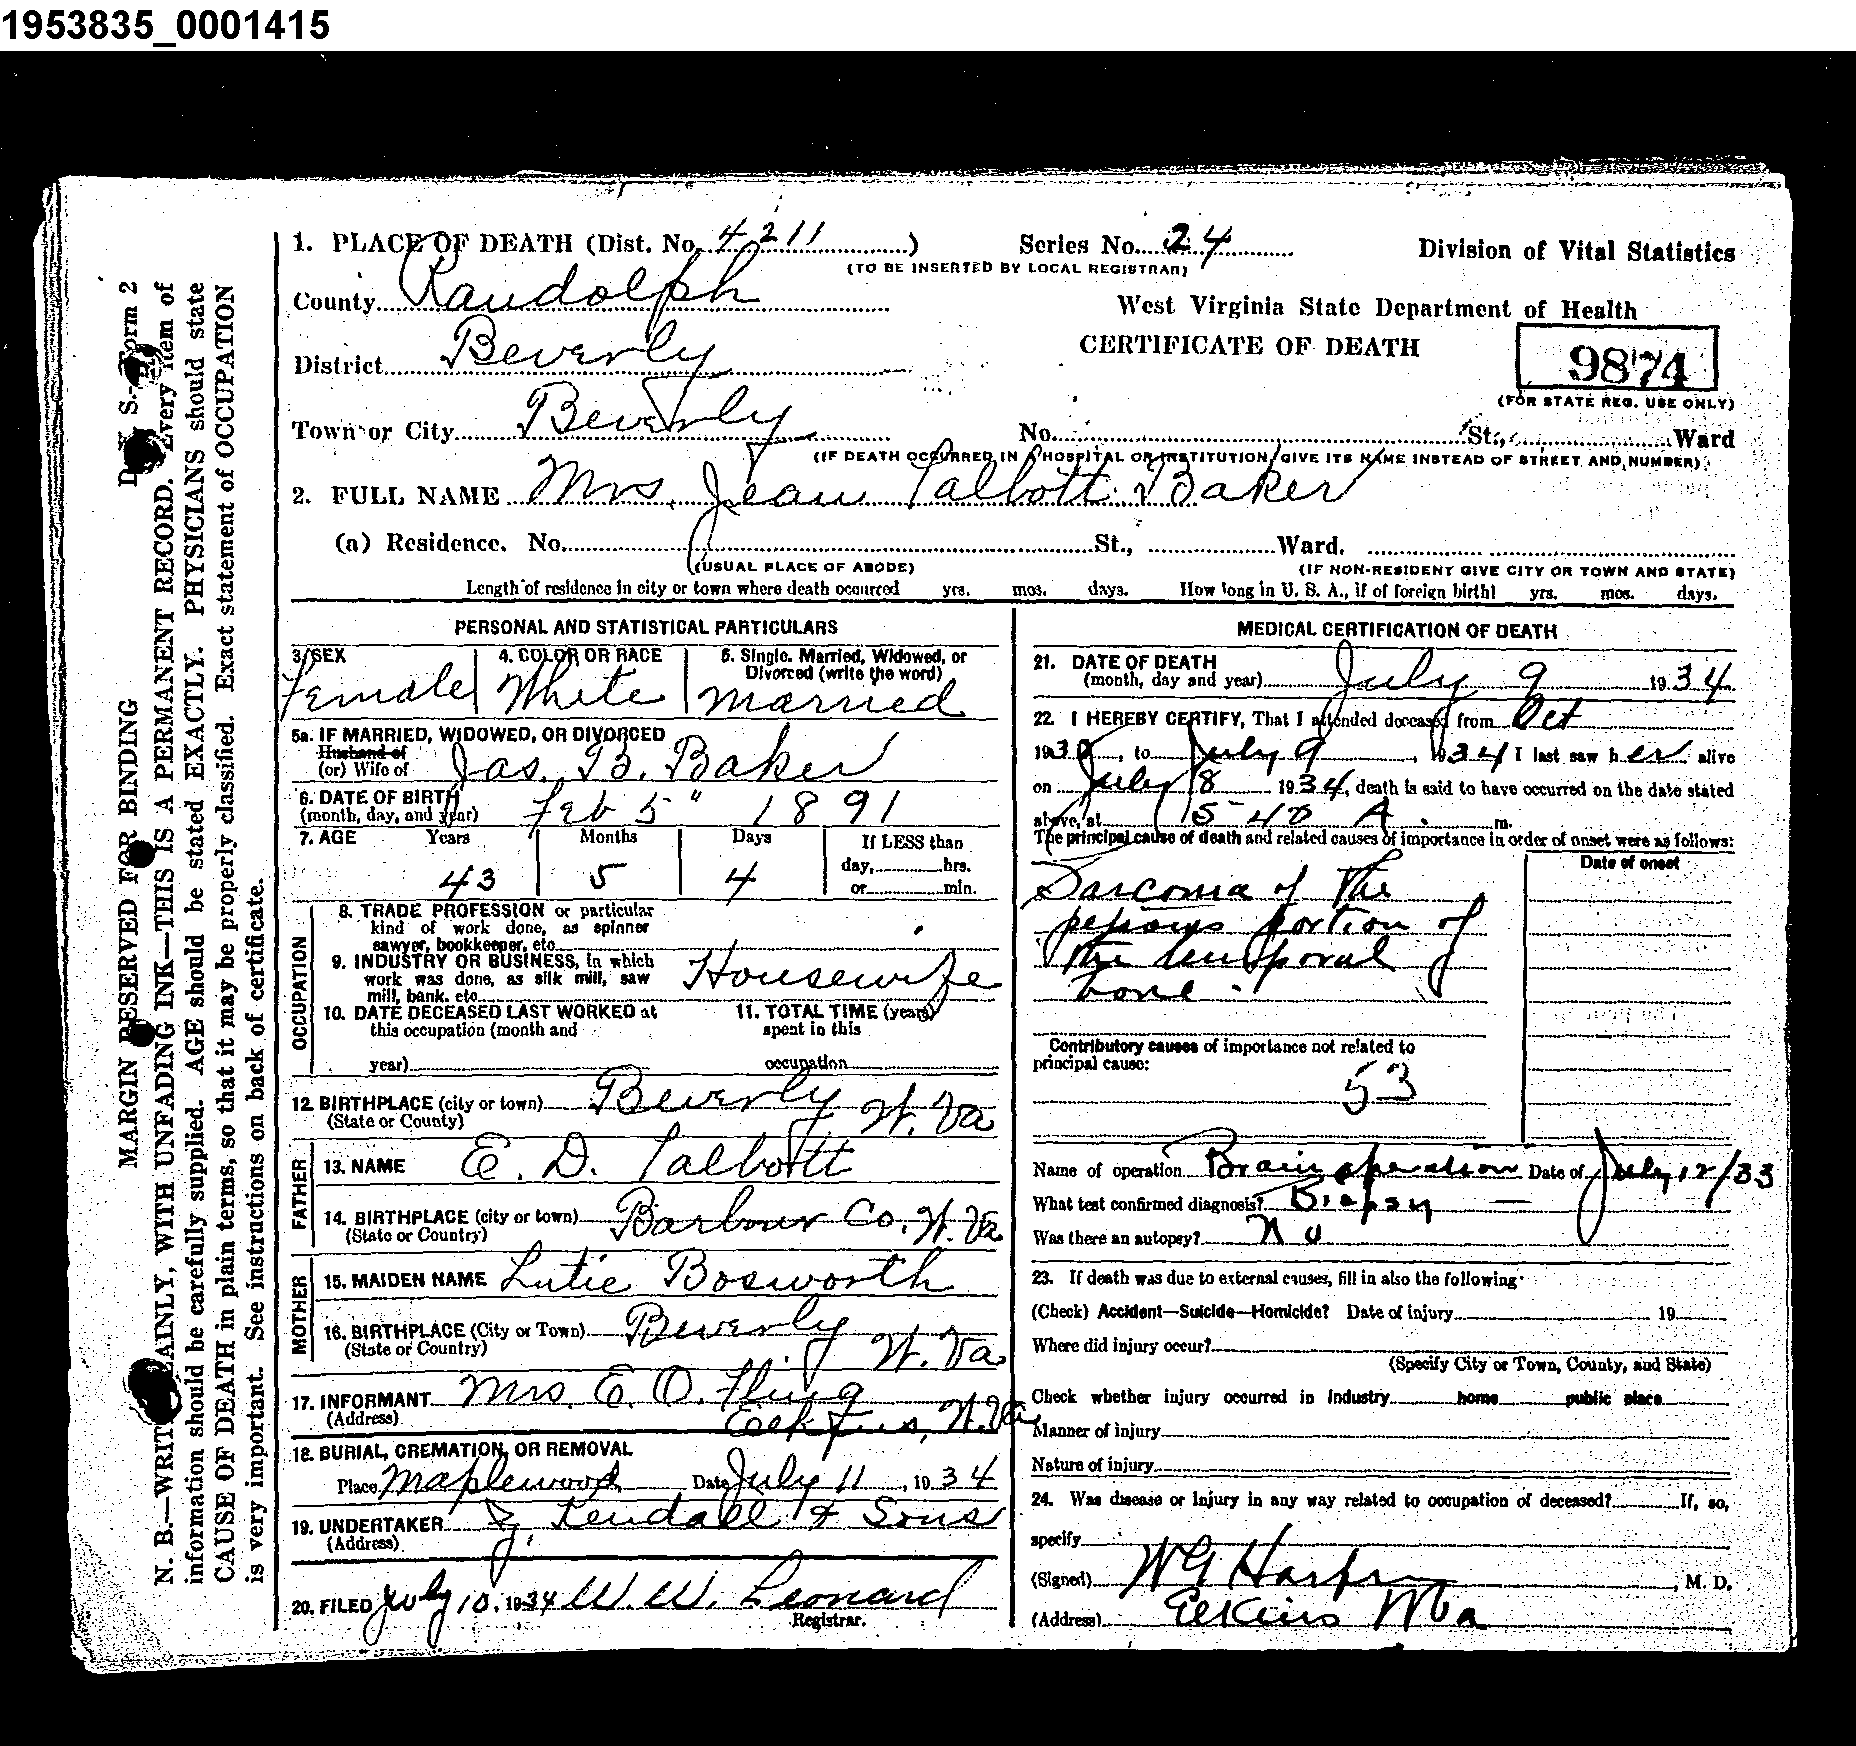 1953835_0001415
1. PLACE OF DEATH (Dist. No. 4211 )
Series No. 24
Division of Vital Statistics
(TO BE INSERTED BY LOCAL REGISTRAR)
County Randolph
West Virginia State Department of Health
CERTIFICATE OF DEATH
9874
(FOR STATE REG. USE ONLY)
District Beverly
Town or City Beverly
No. St., Ward
(IF DEATH OCCURRED IN A HOSPITAL OR INSTITUTION, GIVE ITS NAME INSTEAD OF STREET AND NUMBER)
2. FULL NAME Mrs. Jean Talbott Baker
(a) Residence. No. St., Ward.
(USUAL PLACE OF ABODE)
(IF NON-RESIDENT GIVE CITY OR TOWN AND STATE)
Length of residence in city or town where death occurred yrs. mos. days. How long in U. S. A., if of foreign birth? yrs. mos. days.
PERSONAL AND STATISTICAL PARTICULARS
3. SEX 4. COLOR OR RACE 5. Single, Married, Widowed, or
Divorced (write the word)
Female White Married
5a. IF MARRIED, WIDOWED, OR DIVORCED
Husband of
(or) Wife of Jas. B. Baker
6. DATE OF BIRTH
(month, day, and year) Feb 5" 1891
7. AGE Years Months Days If LESS than
day, hrs.
43 5 4 or min.
OCCUPATION
8. TRADE PROFESSION or particular
kind of work done, as spinner
sawyer, bookkeeper, etc.
9. INDUSTRY OR BUSINESS, in which
work was done, as silk mill, saw
mill, bank, etc. Housewife
10. DATE DECEASED LAST WORKED at
this occupation (month and
year)
11. TOTAL TIME (years)
spent in this
occupation
12. BIRTHPLACE (city or town) Beverly W. Va
(State or County)
FATHER
13. NAME E. D. Talbott
14. BIRTHPLACE (city or town) Barbour Co. W. Va
(State or Country)
MOTHER
15. MAIDEN NAME Lutie Bosworth
16. BIRTHPLACE (City or Town) Beverly W. Va.
(State or Country)
17. INFORMANT Mrs. E. O. Fling
(Address) Elkins, W. Va
18. BURIAL, CREMATION, OR REMOVAL
Place Maplewood Date July 11, 1934
19. UNDERTAKER Kendall & Sons
(Address)
20. FILED July 10, 1934 W. W. Leonard
Registrar.
MEDICAL CERTIFICATION OF DEATH
21. DATE OF DEATH
(month, day and year) July 9 1934
22. I HEREBY CERTIFY, That I attended deceased from Oct
1930, to July 9, 1934 I last saw her alive
on July 8 1934, death is said to have occurred on the date stated
above, at 5 40 A. m.
The principal cause of death and related causes of importance in order of onset were as follows:
Date of onset
Sarcoma of the
petrous portion of
the temporal
bone.
Contributory causes of importance not related to
principal cause:
53
Name of operation Brain operation Date of July 12/33
What test confirmed diagnosis? Biopsy
Was there an autopsy? No
23. If death was due to external causes, fill in also the following:
(Check) Accident—Suicide—Homicide? Date of injury 19
Where did injury occur?
(Specify City or Town, County, and State)
Check whether injury occurred in industry home public place
Manner of injury
Nature of injury
24. Was disease or injury in any way related to occupation of deceased? If, so,
specify
(Signed) W G Harper, M. D.
(Address) Elkins W Va
MARGIN RESERVED FOR BINDING
Form 2
N. B.—WRITE PLAINLY, WITH UNFADING INK—THIS IS A PERMANENT RECORD. Every item of
information should be carefully supplied. AGE should be stated EXACTLY. PHYSICIANS should state
CAUSE OF DEATH in plain terms, so that it may be properly classified. Exact statement of OCCUPATION
is very important. See instructions on back of certificate.